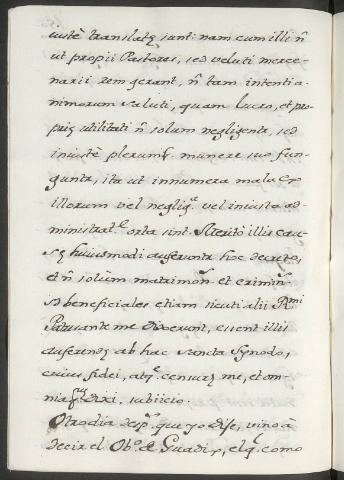 iustè translatę sunt: nam cum illi ñ
ut propii Pastores, sed veluti merce-
narii rem gerant, ñ tam intenti a-
nimorum saluti, quam lucro, et pro-
prię utilitati ñ solum negligenter, sed
iniustè plerumq. munere suo fun-
guntr, ita ut innumera mala ex
illorum vel neglig.ª vel iniusta ad
ministrat.e orta sint. Meritò illis cau-
sę huiusmodi auferuntr hoc decreto,
et ñ solùm matrimon. et crimin.
sed beneficiales etiam sicuti alii Rmi
Patres ante me dixerunt, essent illis
auferendę ab hac sancta Synodo,
cuius fidei, atq. censurę me, et om-
nia dixi, subiicio.
Otro dia desp.s que yo dije, vino à
decir el Ob.o de Guadix, el q. como